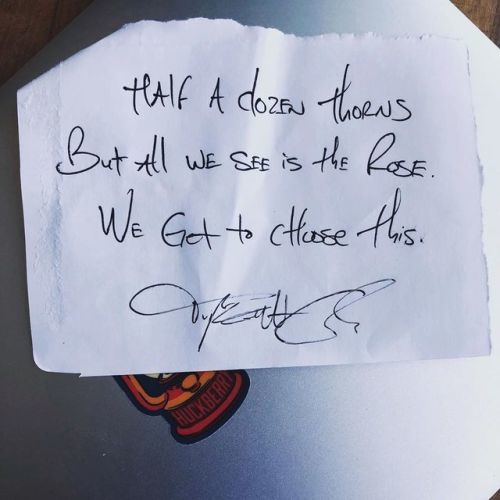 HALF A dozEN thoRNS
But All WE SEE is thE RosE.
WE Get to cHoose this.
HUCKBERRY